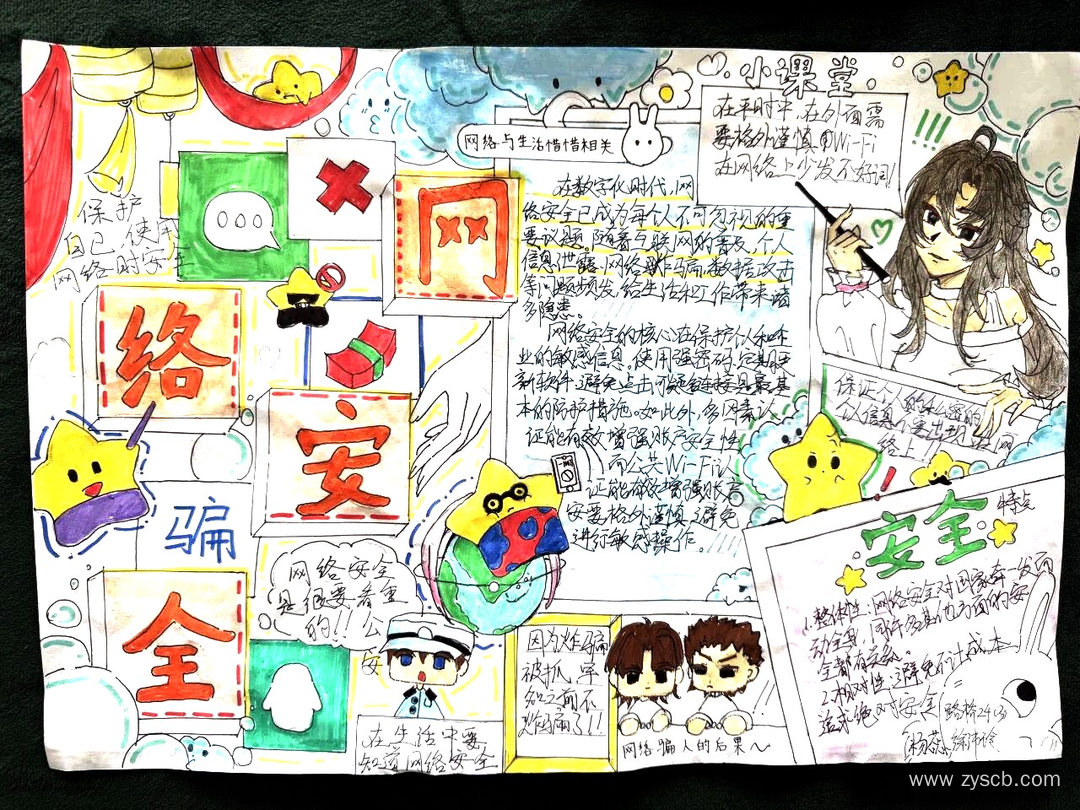 小课堂
在平时中,在外面需
要格外谨慎用Wi-Fi
在网络上少发不好词!
网络与生活惜惜相关
保护
自己,使用
网络时安全
网
络
安
全
骗
在数字化时代,网
络安全已成为每个人不可忽视的重
要议题。随着互联网的普及,个人
信息泄露、网络诈骗、数据攻击
等问题频发,给生活和工作带来诸
多隐患。
网络安全的核心在保护个人和企
业的敏感信息。使用强密码、定期更
新软件、避免点击可疑链接是最基
本的防护措施。如此外,多因素认
证能有效增强账户安全性
而公共Wi-Fi认
证能有效增强账户
安要格外谨慎,避免
进行敏感操作。
保证个人的私密的
个人信息不要出现在网
络上!
安全 特点
1.整体性:网络安全对国家牵一发而
动全身,同许多其他方面的安
全都有关系。
2.相对性:避免不计成本
追求绝对安全
路桥24(3)
网络安全
是很要看重
的!!公
安
在生活中要
知道网络安全
因为诈骗
被抓,早
知之前不
诈骗了!!
网络骗人的后果~
www.zyscb.com